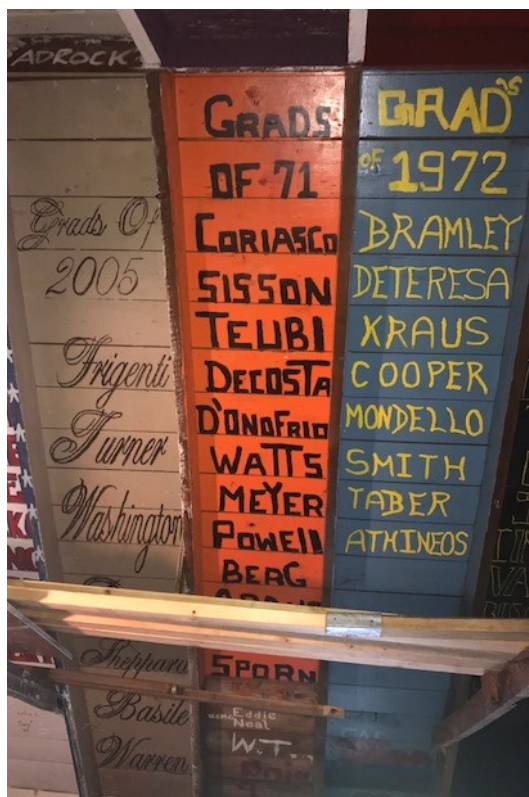 ADROCK
Grads Of
2005
Frigenti
Turner
Washington
Sheppard
Basile
Warren
GRADS
OF 71
CORIASCO
SISSON
TEUBI
DECOSTA
D'ONOFRIO
WATTS
MEYER
POWEll
BERG
SPORN
Eddie
Neal
W.T.
GRAD'S
OF 1972
BRAMLEY
DETERESA
KRAUS
COOPER
MONDELLO
SMITH
TABER
ATHINEOS